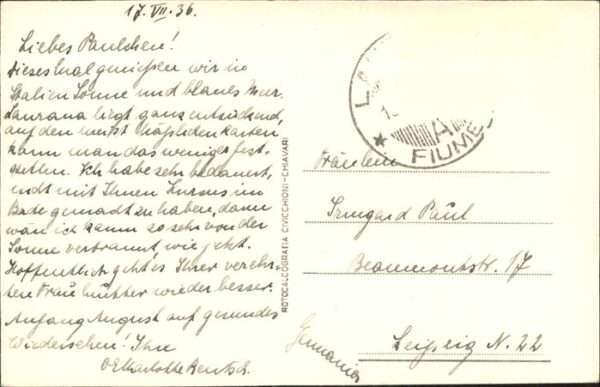 17. VII. 36.
Liebes Paulchen!
Dieses Mal genießen wir in
Italien Sonne und blaues Meer.
Laurana liegt ganz entzückend,
auf den meist häßlichen Karten
kann man das weniger fest-
stellen. Ich habe sehr bedauert,
nicht mit Ihnen Luxus im
Bade gemacht zu haben, denn
war ich kaum so sehr von der
Sonne verbrannt, wie jetzt.
Hoffentlich geht's Ihrer verehr-
ten Frau Mutter wieder besser.
Anfang August auf gesundes
Wiedersehen! Ihre
Charlotte Rentsch.
ROTOCALCOGRAFIA CIVICCHIONI-CHIAVARI
FIUME
Fräulein
Irmgard Paul
Beaumontstr. 17
Leipzig N. 22
Germania